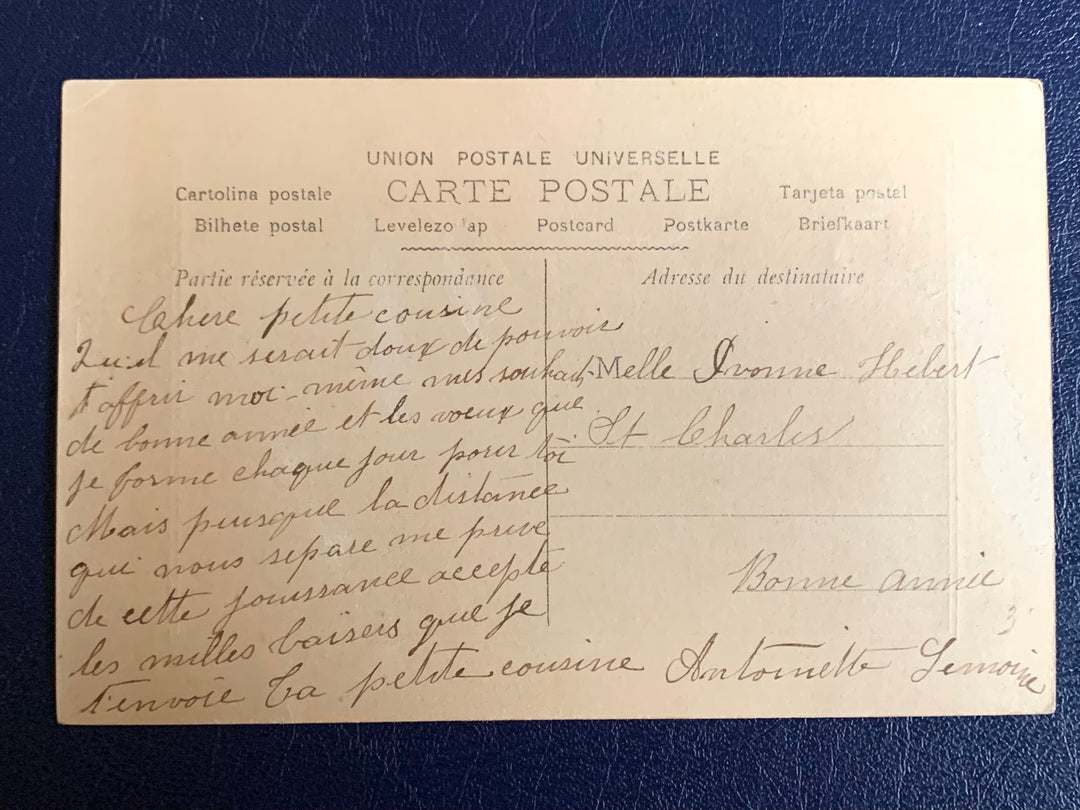 UNION POSTALE UNIVERSELLE
CARTE POSTALE
Cartolina postale
Tarjeta postal
Bilhete postal Levelezo lap Postcard Postkarte Briefkaart
Partie réservée à la correspondance
Adresse du destinataire
Chere petite cousine
Qu'il me serait doux de pouvoir
t'offrir moi-même mes souhaits
de bonne année et les voeux que
je forme chaque jour pour toi
Mais puisque la distance
qui nous separe me prive
de cette jouissance accepte
les milles baisers que je
t'envoie Ta petite cousine Antoinette Lemoine
Melle Ivonne Hebert
St Charles
Bonne année
3